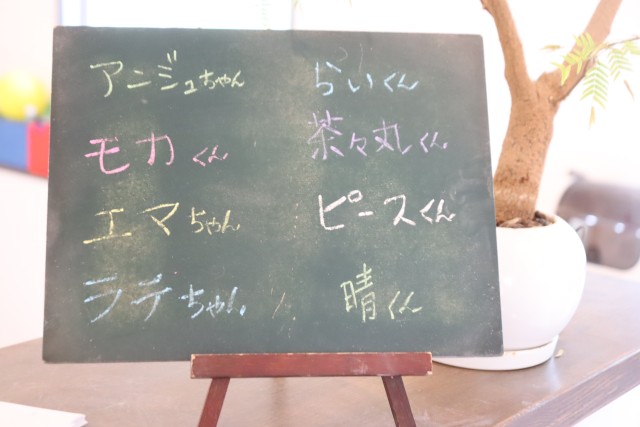 アンジュちゃん
モカくん
エマちゃん
ラテちゃん
らいくん
茶々丸くん
ピースくん
晴くん